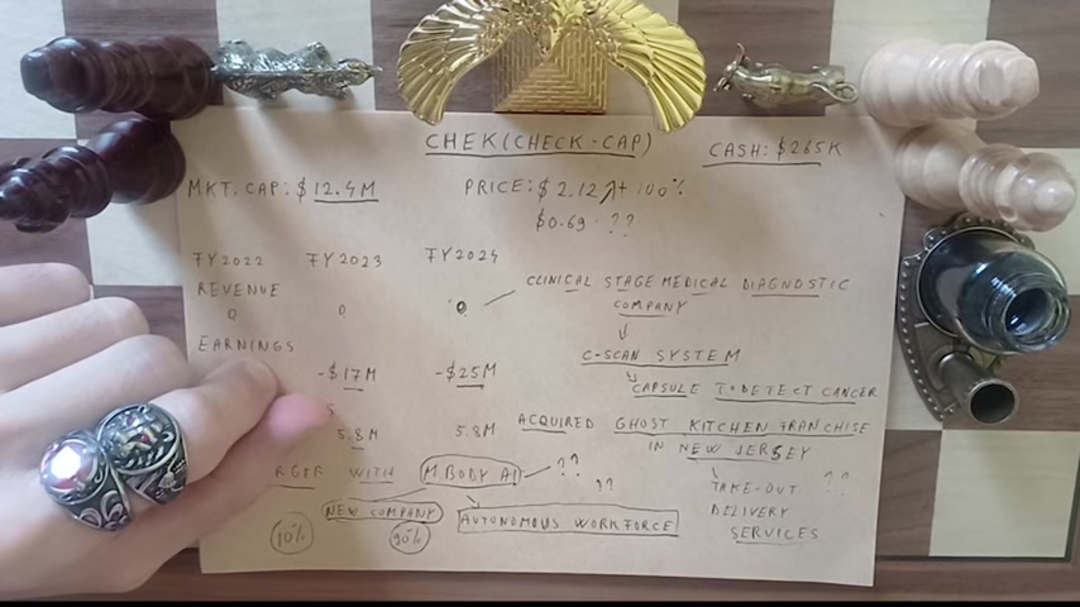 CHEK(CHECK-CAP)
CASH: $265K
MKT. CAP: $12.4M
PRICE: $2.12 ↗+100%
$0.69 - ??
FY2022 FY2023 FY2024
REVENUE
0 0 0
CLINICAL STAGE MEDICAL DIAGNOSTIC
COMPANY
C-SCAN SYSTEM
CAPSULE TO DETECT CANCER
EARNINGS
-$17M -$25M
S
5.8M 5.8M
ACQUIRED GHOST KITCHEN FRANCHISE
IN NEW JERSEY
TAKE-OUT ??
DELIVERY
SERVICES
RGER WITH MBODY AI ??
??
NEW COMPANY
AUTONOMOUS WORKFORCE
10% 90%